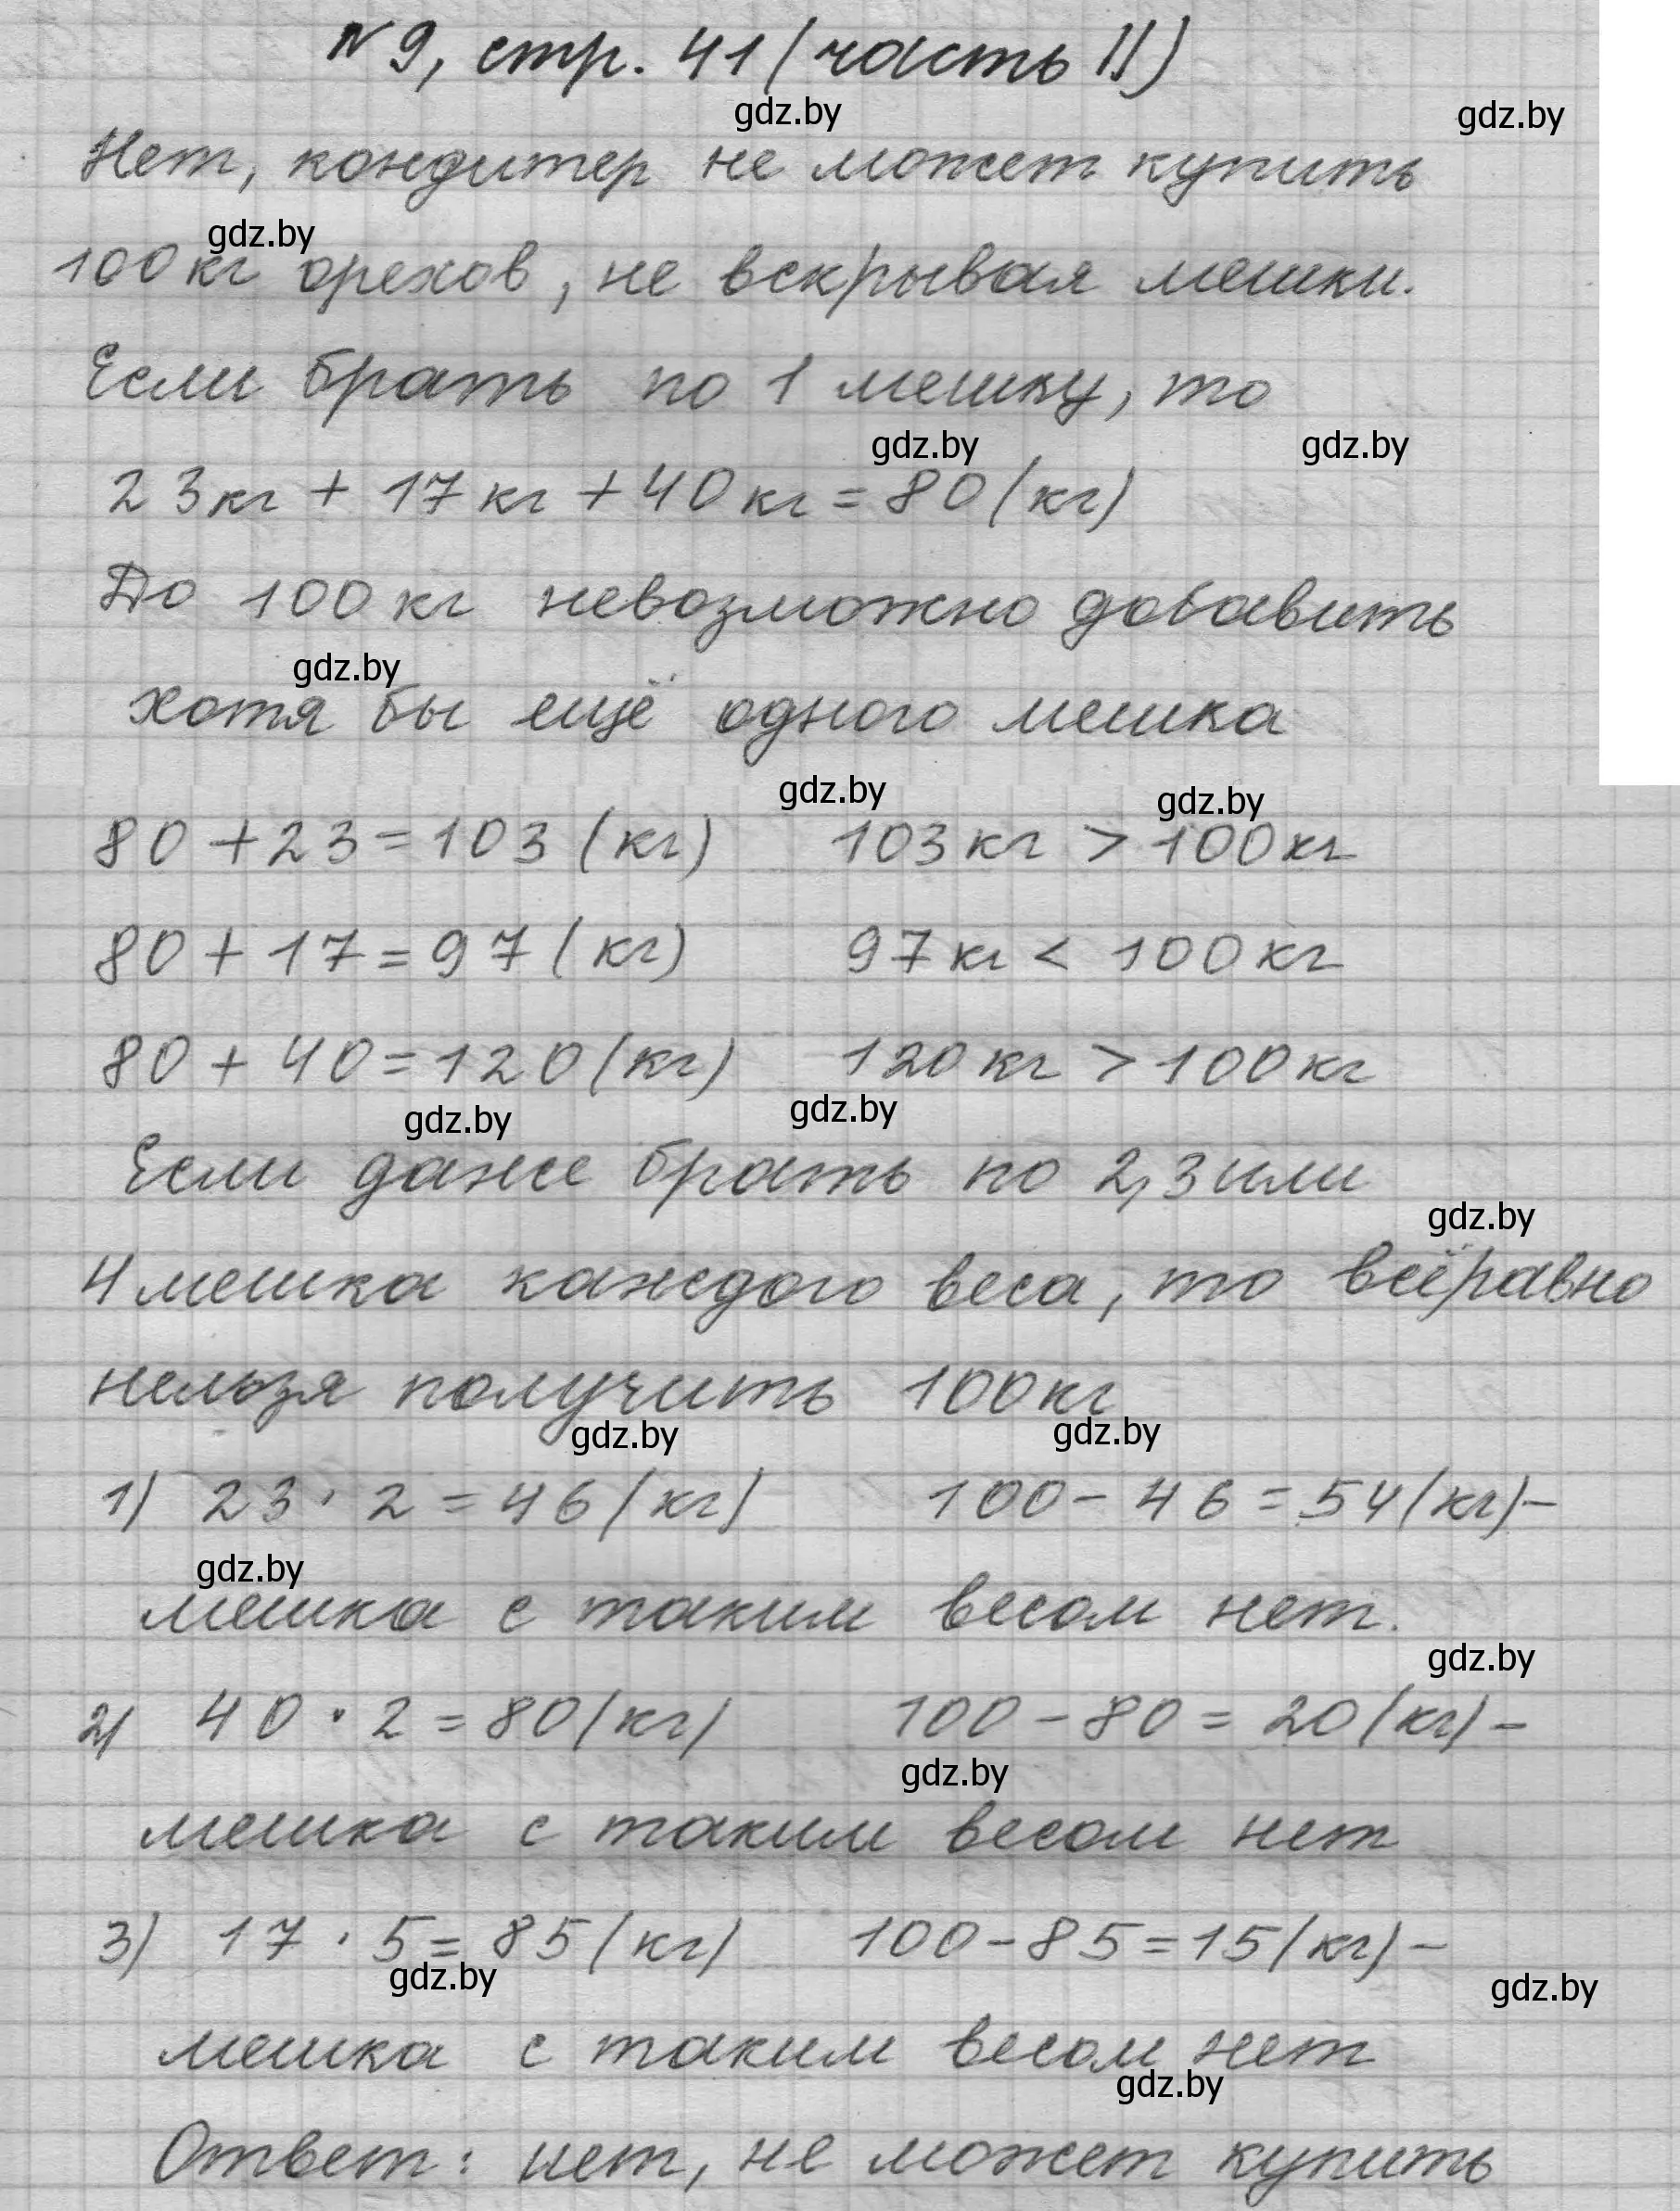 №9, стр. 41 (часть II)
gdz.by
gdz.by
Нет, кондитер не может купить
gdz.by
100 кг орехов, не вскрывая мешки.
Если брать по 1 мешку, то
gdz.by
gdz.by
23 кг + 17 кг + 40 кг = 80 (кг)
До 100 кг невозможно добавить
gdz.by
хотя бы ещё одного мешка
gdz.by
gdz.by
80 + 23 = 103 (кг) 103 кг > 100 кг
80 + 17 = 97 (кг) 97 кг < 100 кг
80 + 40 = 120 (кг) 120 кг > 100 кг
gdz.by
gdz.by
Если даже брать по 2, 3 или
gdz.by
4 мешка каждого веса, то всё равно
нельзя получить 100 кг
gdz.by
gdz.by
1) 23 · 2 = 46 (кг) 100 - 46 = 54 (кг) -
gdz.by
мешка с таким весом нет.
gdz.by
2) 40 · 2 = 80 (кг) 100 - 80 = 20 (кг) -
gdz.by
мешка с таким весом нет
3) 17 · 5 = 85 (кг) 100 - 85 = 15 (кг) -
gdz.by
gdz.by
мешка с таким весом нет
gdz.by
Ответ: нет, не может купить